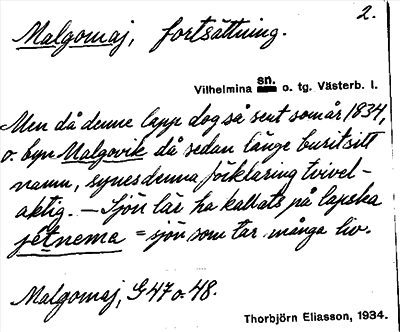 2.
Malgomaj, fortsättning.
Vilhelmina sn. o. tg. Västerb. l.
Men då denne lapp dog så sent som år 1834,
o. byn Malgovik då sedan länge burit sitt
namn, synes denna förklaring tvivel-
aktig. — Sjön lär ha kallats på lapska
jetnema = sjön som tar många liv.
Malgomaj, G. 47 o. 48.
Thorbjörn Eliasson, 1934.